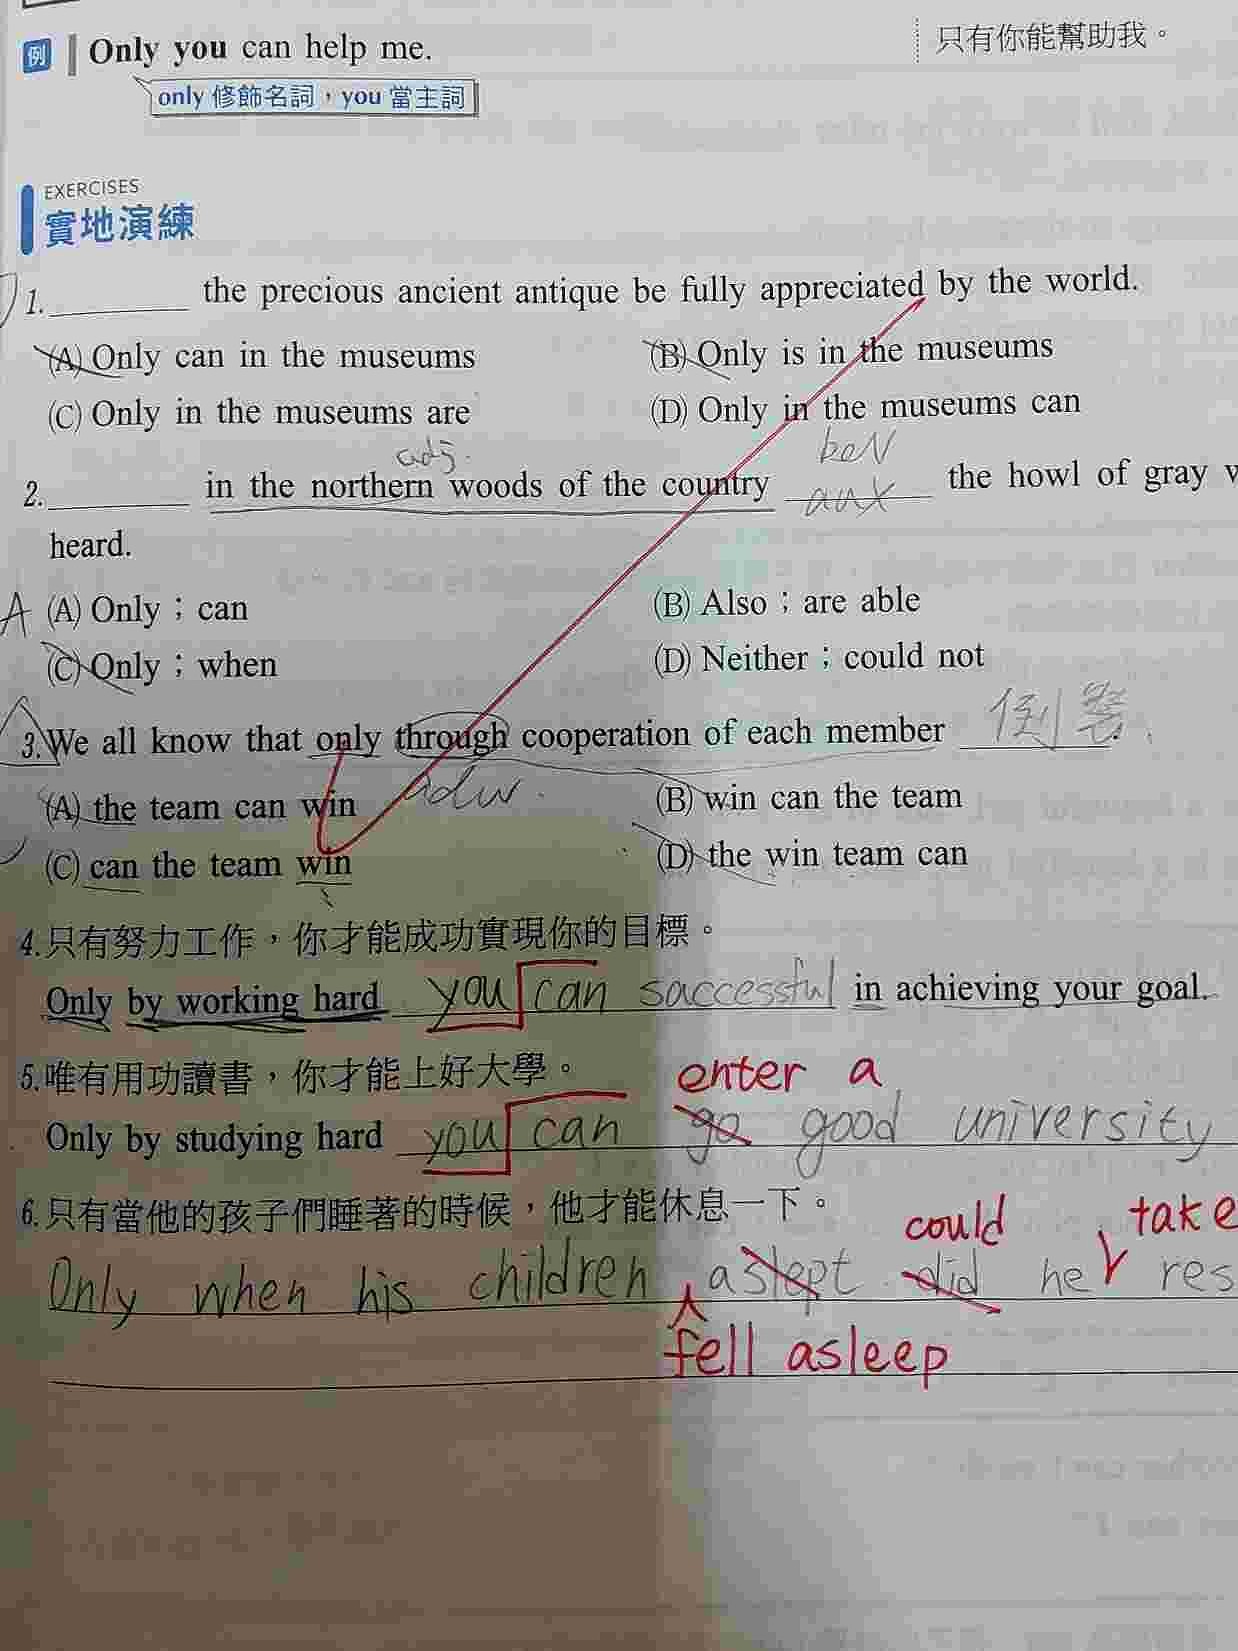 例 Only you can help me. 只有你能幫助我。
only 修飾名詞，you 當主詞
EXERCISES
實地演練
1. the precious ancient antique be fully appreciated by the world.
(A) Only can in the museums (B) Only is in the museums
(C) Only in the museums are (D) Only in the museums can
adj. beV
2. in the northern woods of the country aux the howl of gray
heard.
A (A) Only；can (B) Also；are able
(C) Only；when (D) Neither；could not
3. We all know that only through cooperation of each member 倒裝
(A) the team can win adv. (B) win can the team
(C) can the team win (D) the win team can
4. 只有努力工作，你才能成功實現你的目標。
Only by working hard you can saccessful in achieving your goal.
5. 唯有用功讀書，你才能上好大學。 enter a
Only by studying hard you can go good university
6. 只有當他的孩子們睡著的時候，他才能休息一下。 could take
Only when his children aslept did he res
fell asleep